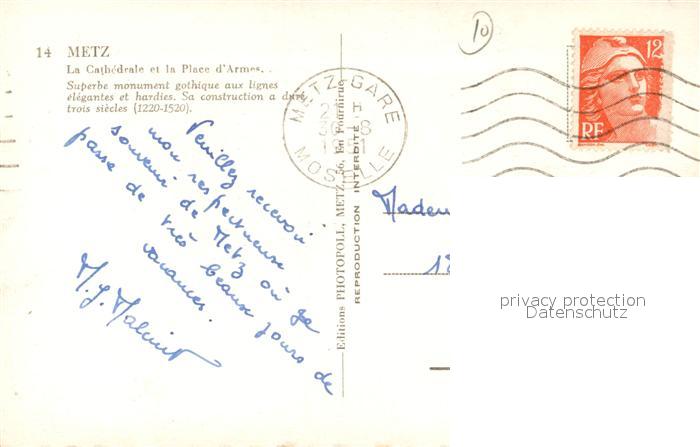 14 METZ
La Cathédrale et la Place d'Armes.
Superbe monument gothique aux lignes
élégantes et hardies. Sa construction a duré
trois siècles (1220-1520).
Veuillez recevoir
mon respectueux
souvenir de Metz où je
passe de très beaux jours de
vacances.
Editions PHOTOFOLL, METZ, 56, En Fournirue
REPRODUCTION INTERDITE
METZ-GARE
MOSELLE
10
12
RF
Madem
18
privacy protection
Datenschutz